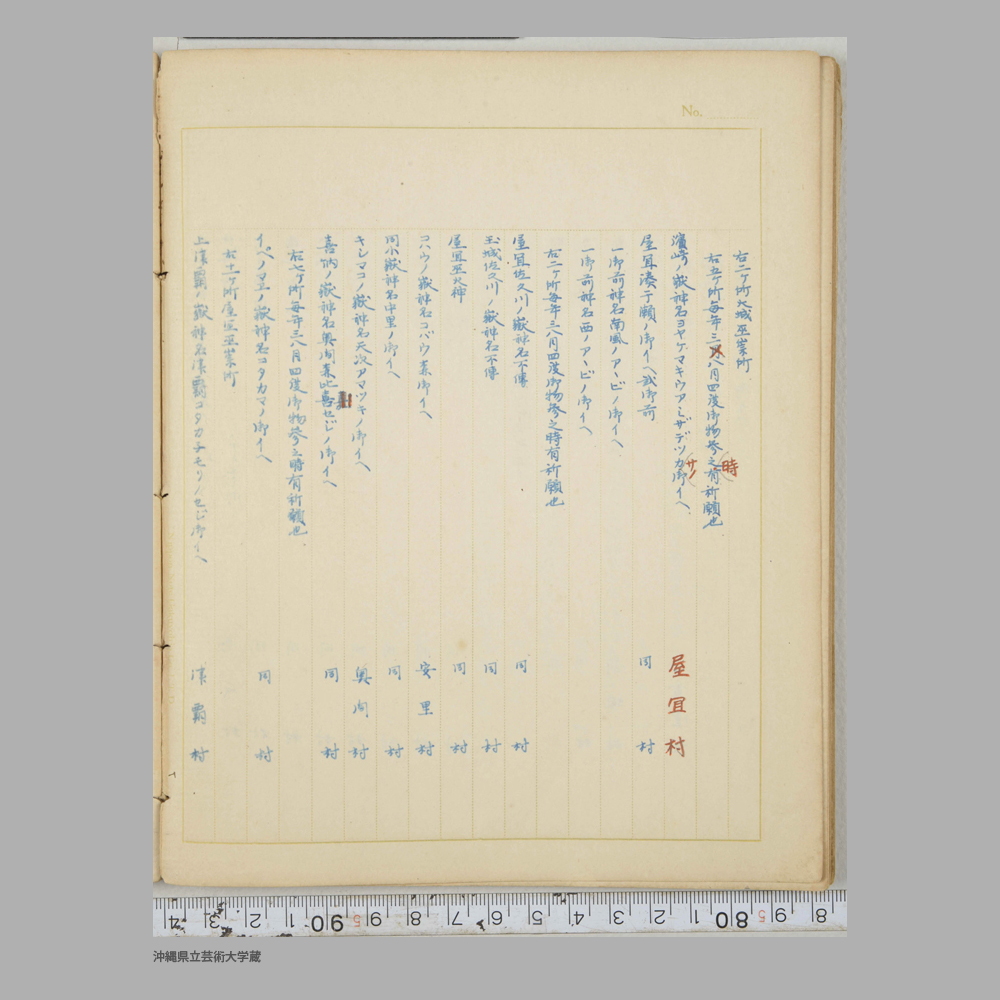 No.
右二ヶ所大城巫崇所
右五ヶ所毎年三八月四度御物参之有祈願也
時
濱崎ノ嶽神名ヨヤゲマキウアミザデツカ御イベ
サノ
屋冝村
屋冝湊干瀬ノ御イベ弐御前 同村
一御前神名南風ノアービノ御イベ
一御前神名西ノアービノ御イベ
右二ヶ所毎年三八月四度御物参之時有祈願也
屋冝佐久川ノ嶽神名不傳 同村
玉城佐久川ノ嶽神名不傳 同村
屋冝巫火神 同村
コバウノ嶽神名コバウ森御イベ 安里村
同小嶽神名中里ノ御イベ 同村
キシマコノ嶽神名天次アマツギノ御イベ 奥間村
喜納ノ嶽神名奥間森此喜セジノ御イベ 同村
右七ヶ所毎年三八月四度御物参之時有祈願也
イベノ嶽神名コタカマノ御イベ 同村
右十一ヶ所屋冝巫崇所
上津覇ノ嶽神名津覇コタカチモリノセジ御イベ 津覇村
4 3 2 1 90 9 8 7 6 5 4 3 2 1 80 9 8
沖縄県立芸術大学蔵